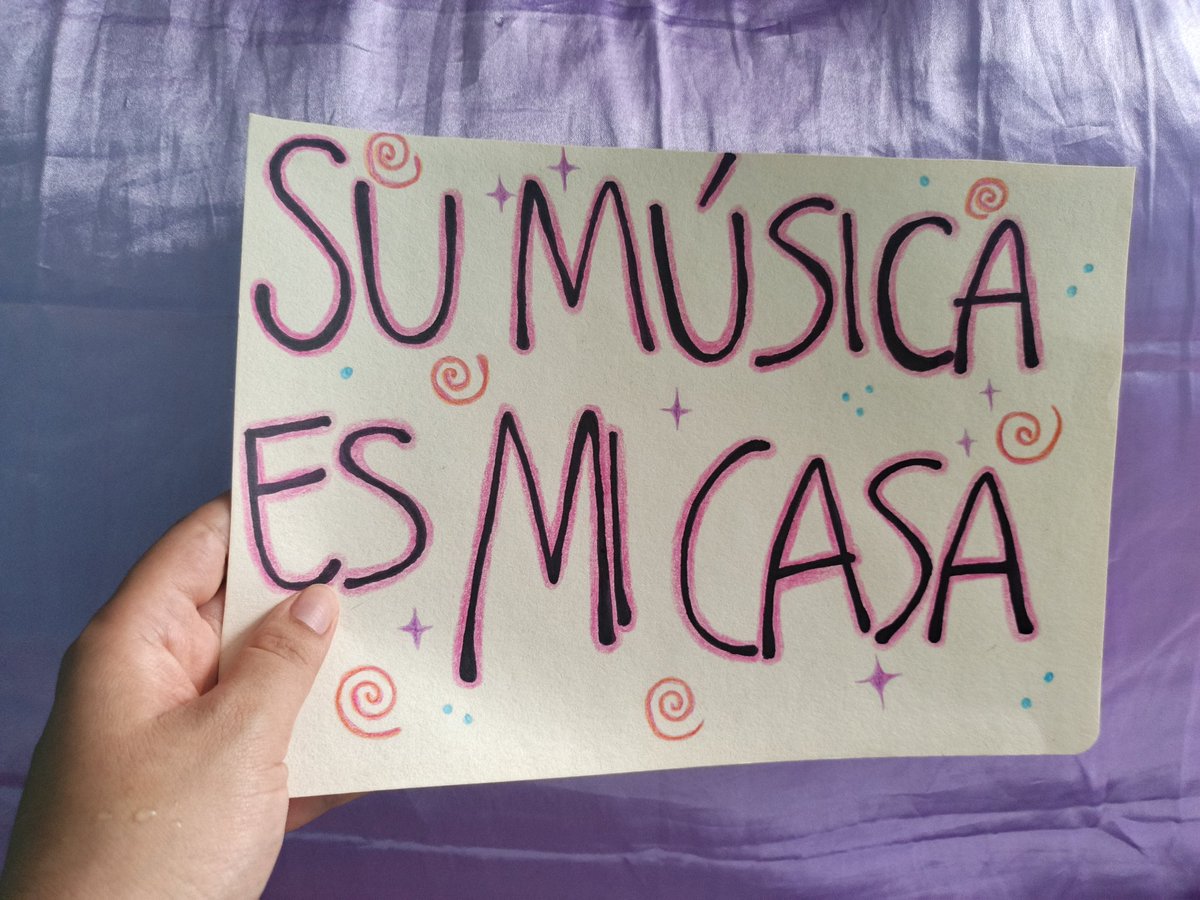 SU MÚSICA
ES MI CASA